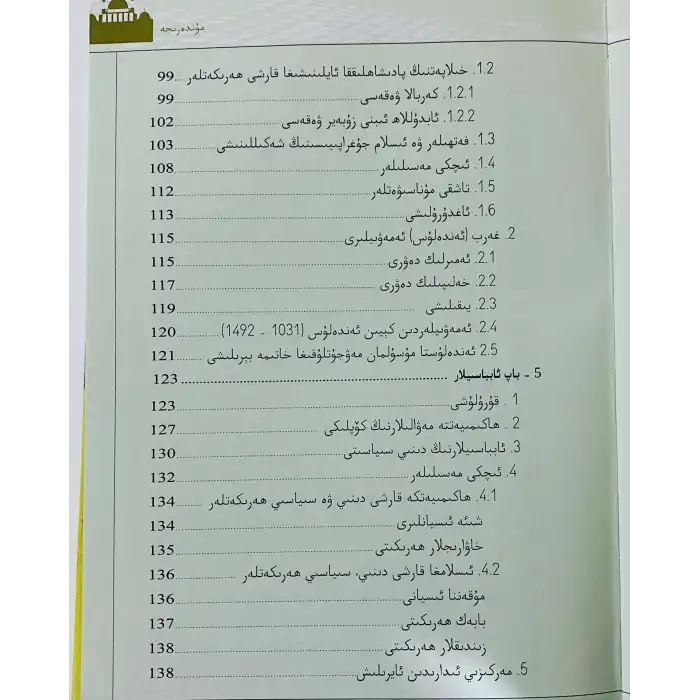 مۇندەرىجە
1.2. خىلاپەتنىڭ پادىشاھلىققا ئايلىنىشىغا قارشى ھەرىكەتلەر....99
1.2.1. كەربالا ۋەقەسى....99
1.2.2. ئابدۇللاھ ئىبنى زۇبەير ۋەقەسى....102
1.3. فەتھىلەر ۋە ئىسلام جۇغراپىيىسىنىڭ شەكىللىنىشى....103
1.4. ئىچكى مەسىلىلەر....108
1.5. تاشقى مۇناسىۋەتلەر....112
1.6. ئاغدۇرۇلىشى....113
2. غەرب (ئەندەلۇس) ئەمەۋىيلىرى....115
2.1. ئەمىرلىك دەۋرى....115
2.2. خەلىپىلىك دەۋرى....117
2.3. يىقىلىشى....119
2.4. ئەمەۋىيلەردىن كېيىن ئەندەلۇس (1031 - 1492)....120
2.5 ئەندەلۇستا مۇسۇلمان مەۋجۇتلۇقىغا خاتىمە بېرىلىشى....121
5 - باپ ئابباسىيلار....123
1 . قۇرۇلۇشى....123
2 . ھاكىمىيەتتە مەۋالىلارنىڭ كۆپلىكى....127
3. ئابباسىيلارنىڭ دىنىي سىياسىتى....130
4. ئىچكى مەسىلىلەر....132
4.1. ھاكىمىيەتكە قارشى دىنىي ۋە سىياسىي ھەرىكەتلەر....134
شىئە ئىسيانلىرى....134
خاۋارىجلار ھەرىكىتى....135
4.2. ئىسلامغا قارشى دىنىي، سىياسىي ھەرىكەتلەر....136
مۇقەننا ئىسيانى....136
بابەك ھەرىكىتى....137
زىندىقلار ھەرىكىتى....138
5. مەركىزىي ئىدارىدىن ئايرىلىش....138